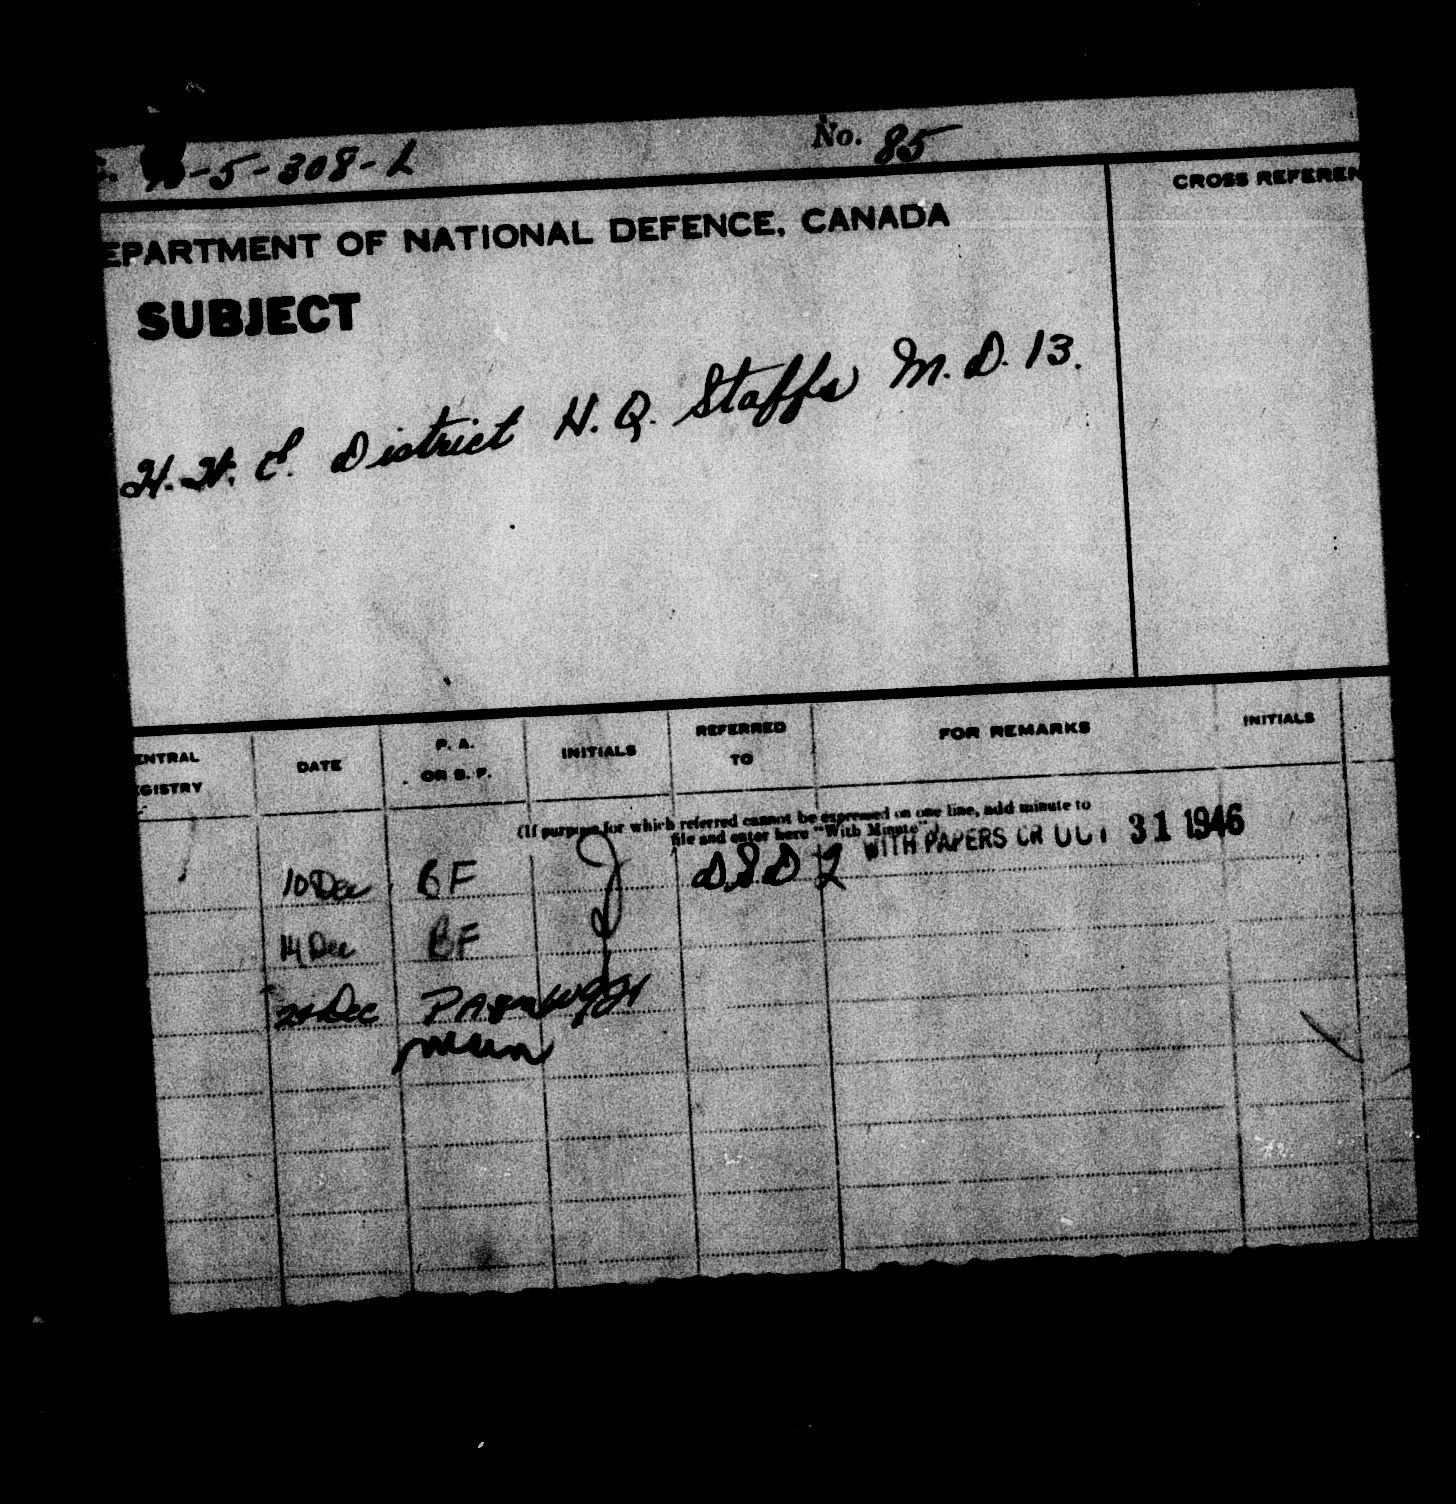 -5-308-L No. 85
CROSS REFEREN
EPARTMENT OF NATIONAL DEFENCE, CANADA
SUBJECT
District H.Q. Staffs M.D. 13.
ENTRAL
GISTRY
DATE
P. A.
OR B. F.
INITIALS
REFERRED
TO
FOR REMARKS
INITIALS
(If purpose for which referred cannot be expressed on one line, add minute to
file and enter here "With Minute".)
WITH PAPERS CR OCT 31 1946
10 Dec BF
14 Dec BF
Dec PA